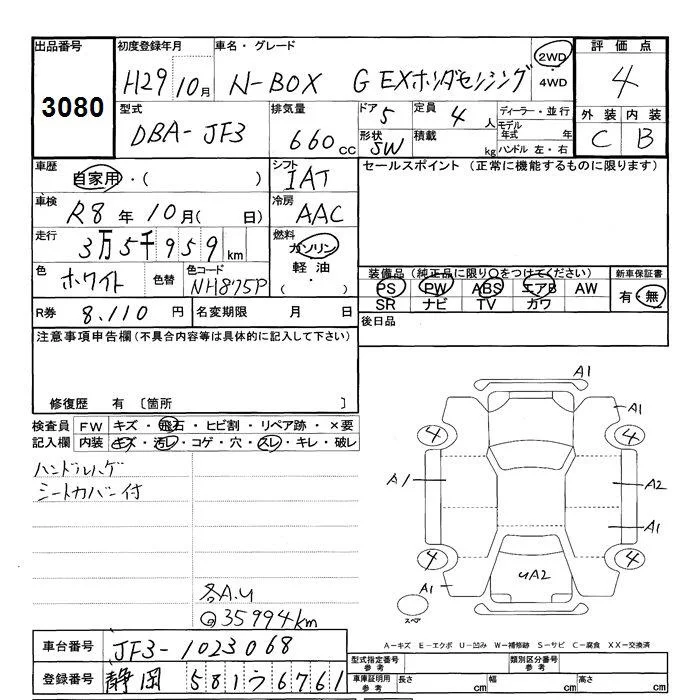 出品番号 初度登録年月 車名・グレード 2WD ・ 4WD 評価点
3080 H29 10月 N-BOX G EXホンダセンシング 4
型式 排気量 ドア 5 定員 4人 ディーラー・並行 外装 内装
DBA-JF3 660cc 形状 SW 積載 kg モデル年式 年 ハンドル 左・右 C B
車歴 自家用・( ) シフト IAT セールスポイント (正常に機能するものに限ります)
車検 R8年10月( 日) 冷房 AAC
走行 3万5千959km 燃料 ガソリン 軽油 ( ・ )
色 ホワイト 色替 色コード NH875P 装備品(純正品に限り○をつけてください) 新車保証書
PS PW ABS エアB AW 有・無
SR ナビ TV カワ
R券 8,110円 名変期限 月 日 後日品
注意事項申告欄(不具合内容等は具体的に記入して下さい)
修復歴 有 〔箇所 〕
検査員記入欄 FW キズ・飛石・ヒビ割・リペア跡・×要
内装 キズ・汚レ・コゲ・穴・スレ・キレ・破レ
ハンドルハゲ
シートカバー付
A1
A1
4 4
A1 A2
A1
4 4
A1 UA2
スペア
各A.U
35994km
A-キズ E-エクボ U-凹み W-補修跡 S-サビ C-腐食 XX-交換済
車台番号 JF3-1023068 型式指定番号 参考 類別区分番号 参考
登録番号 静岡 581う6761 車庫証明用 参考 長さ cm 幅 cm 高さ cm